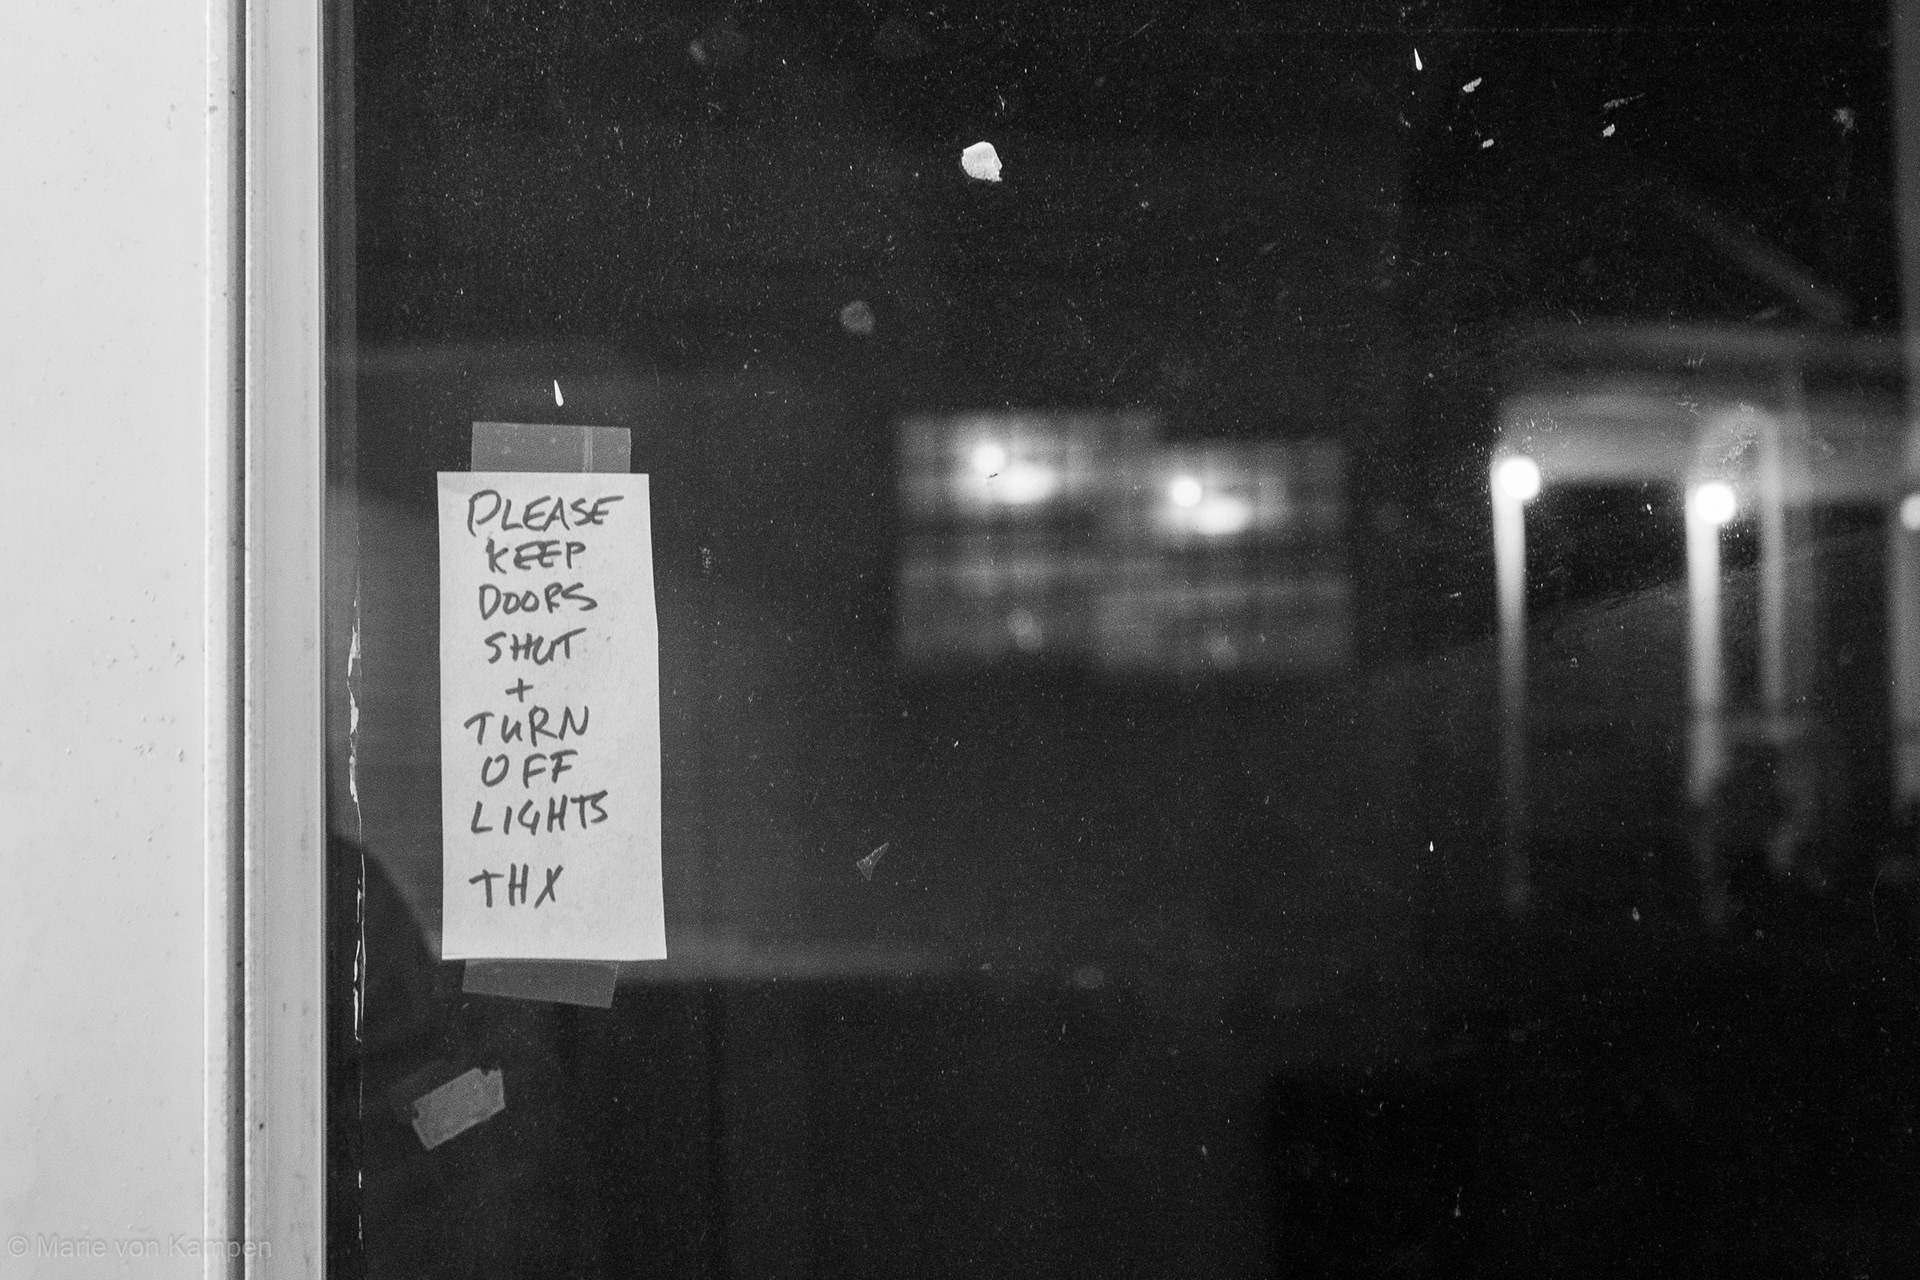 PLEASE
KEEP
DOORS
SHUT
+
TURN
OFF
LIGHTS
THX
© Marie von Kampen